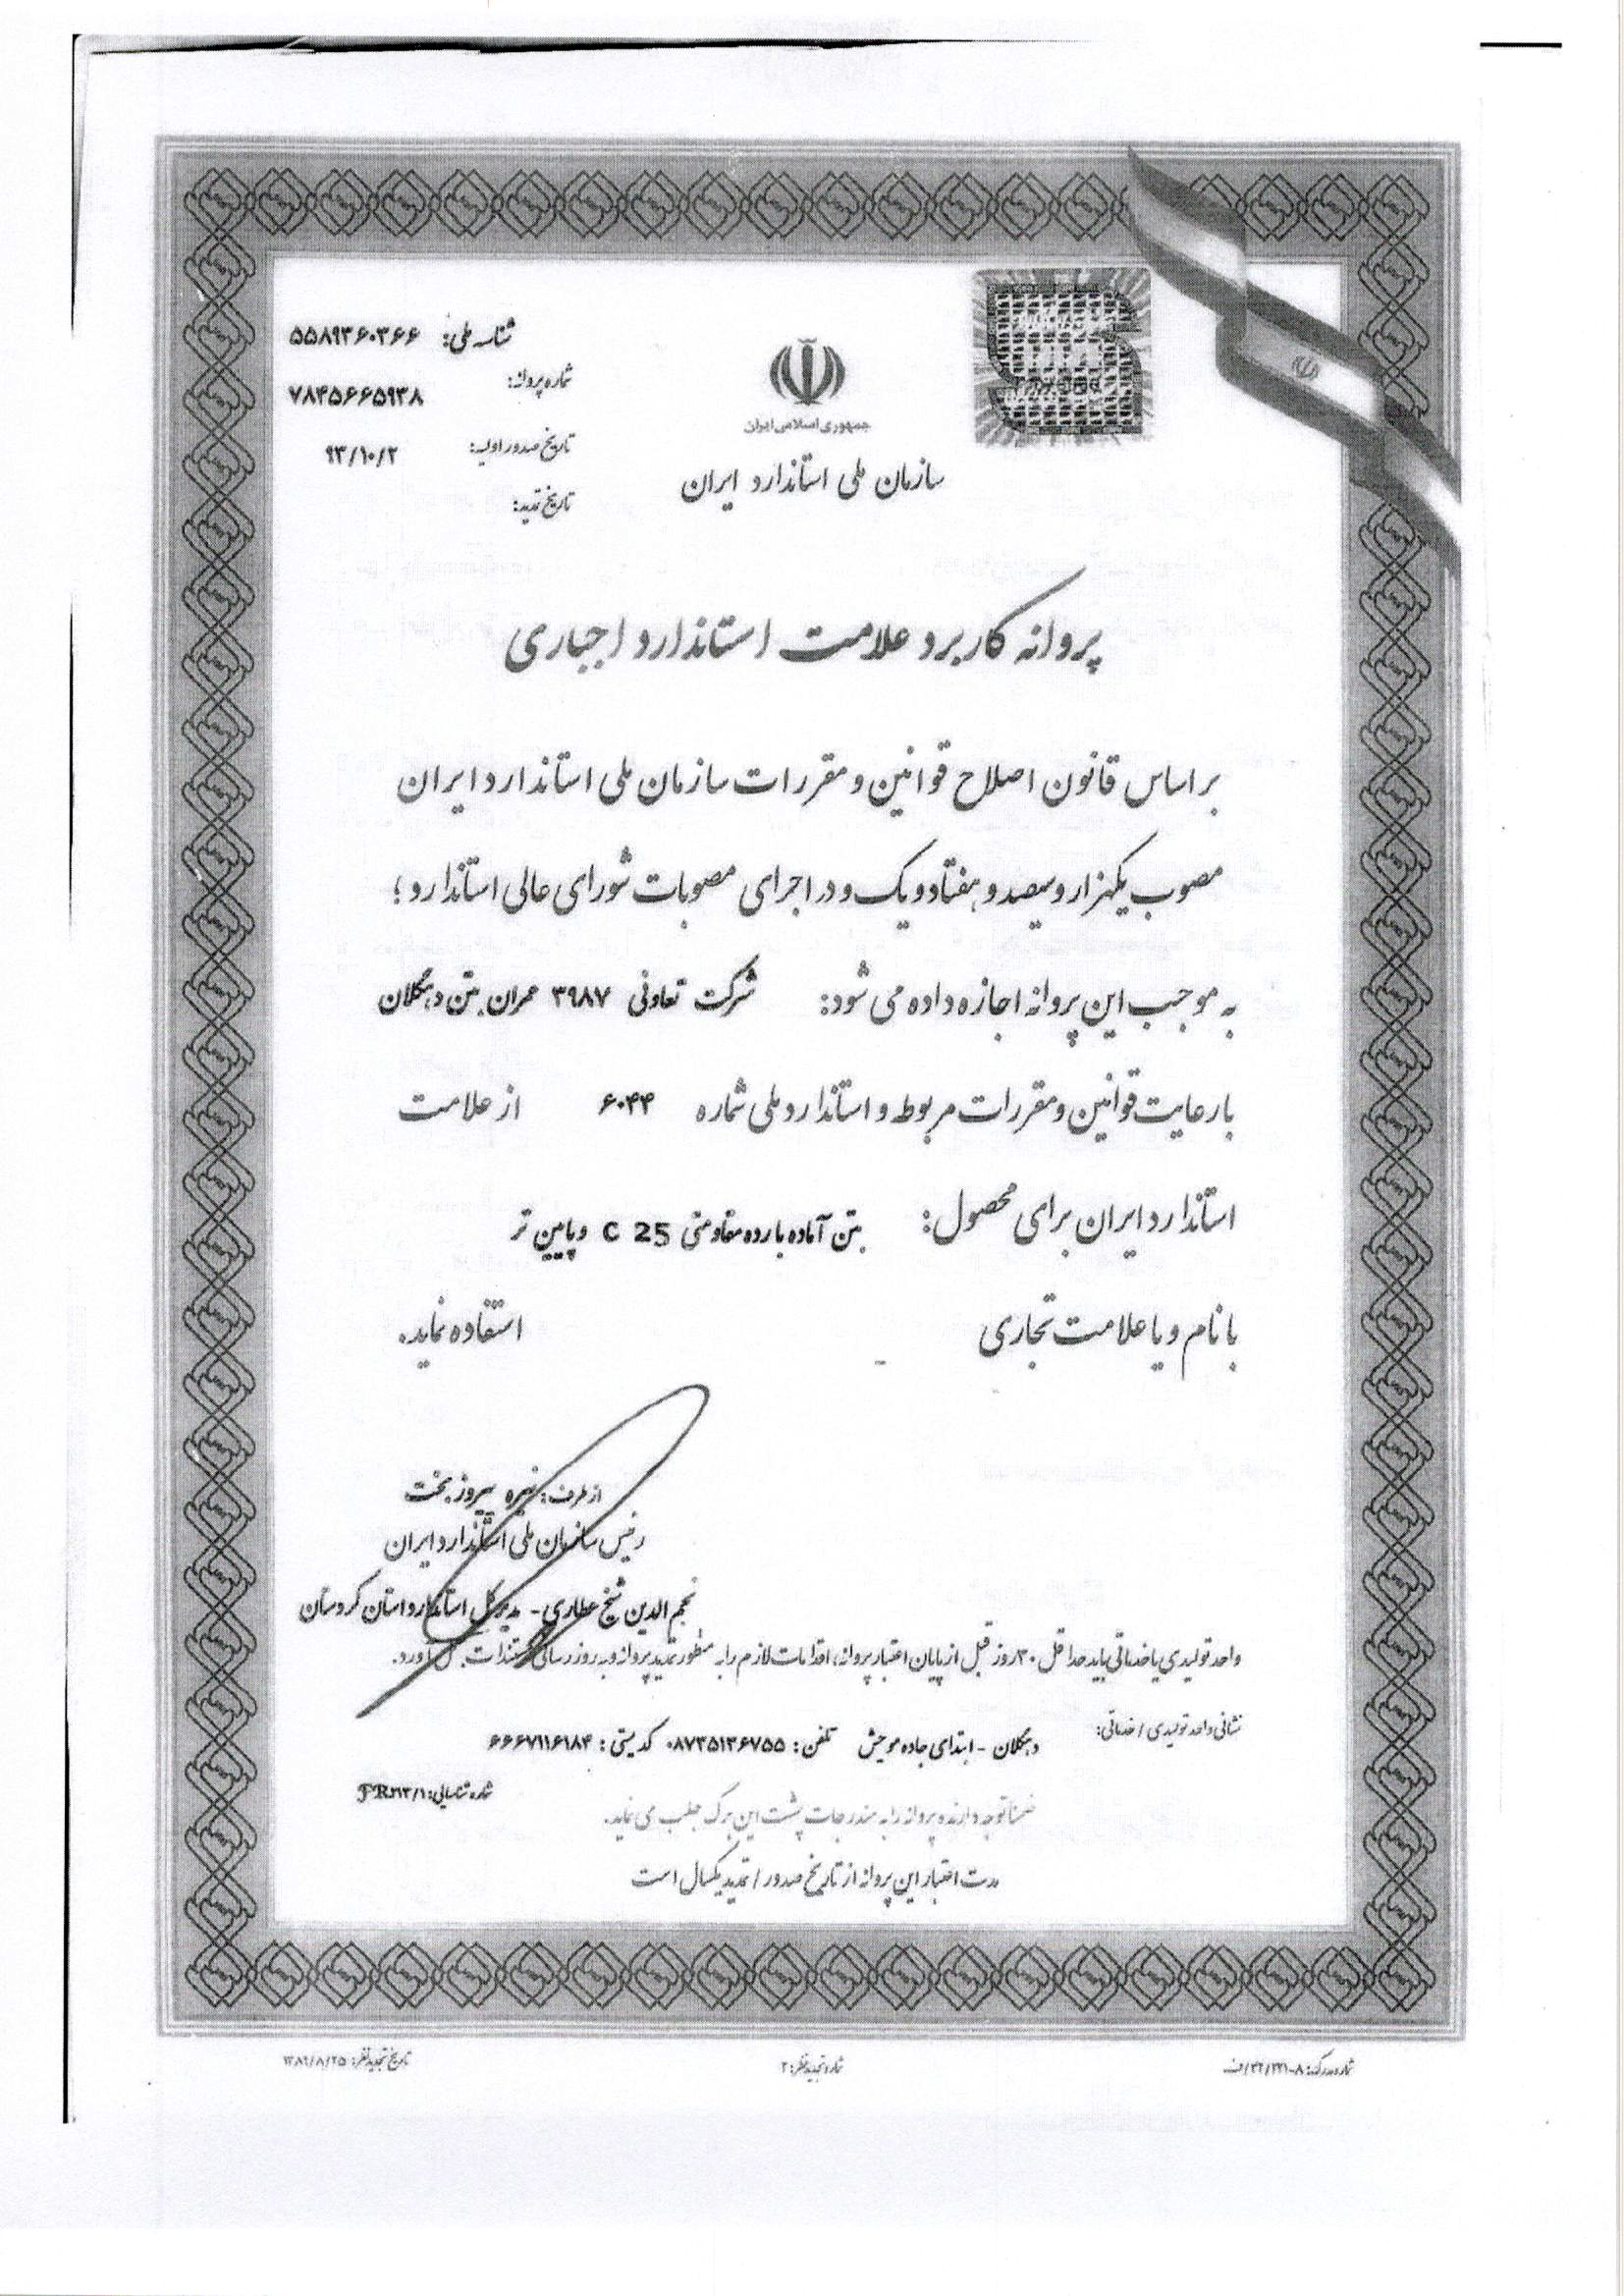 جمهوری اسلامی ایران
سازمان ملی استاندارد ایران
شناسه ملی: ۵۵۸۹۳۶۰۳۶۶
شماره پروانه:
۷۸۴۵۶۶۵۹۳۸
تاریخ صدور اولیه: ۹۳/۱۰/۲
تاریخ تمدید:
پروانه کاربرد علامت استاندارد اجباری
براساس قانون اصلاح قوانین و مقررات سازمان ملی استاندارد ایران
مصوب یکهزار و سیصد و هفتاد و یک و در اجرای مصوبات شورای عالی استاندارد؛
به موجب این پروانه اجازه داده می شود: شرکت تعاونی ۳۹۸۷ عمران بتن دهگلان
با رعایت قوانین و مقررات مربوط و استاندارد ملی شماره ۶۰۴۴ از علامت
استاندارد ایران برای محصول: بتن آماده با رده مقاومتی C 25 و پایین تر
با نام و یا علامت تجاری - استفاده نماید.
از طرف: نیره پیروزبخت
رئیس سازمان ملی استاندارد ایران
نجم الدین شیخ عطاری - مدیر کل استاندارد استان کردستان
واحد تولیدی یا خدماتی باید حداقل ۳۰ روز قبل از پایان اعتبار پروانه، اقدامات لازم را به منظور تمدید پروانه و به روز رسانی مستندات به عمل آورد.
نشانی واحد تولیدی / خدماتی: دهگلان - ابتدای جاده موچش تلفن: ۰۸۷۳۵۱۳۶۷۵۵ کد پستی: ۶۶۶۷۱۱۶۱۸۴
شماره شناسایی:
ضمنا توجه دارنده پروانه را به مندرجات پشت این برگ جلب می نماید.
مدت اعتبار این پروانه از تاریخ صدور / تمدید یکسال است
شماره مدرک:
شماره تجدید نظر: ۲
تاریخ تجدید نظر: ۱۳۸۹/۸/۲۵